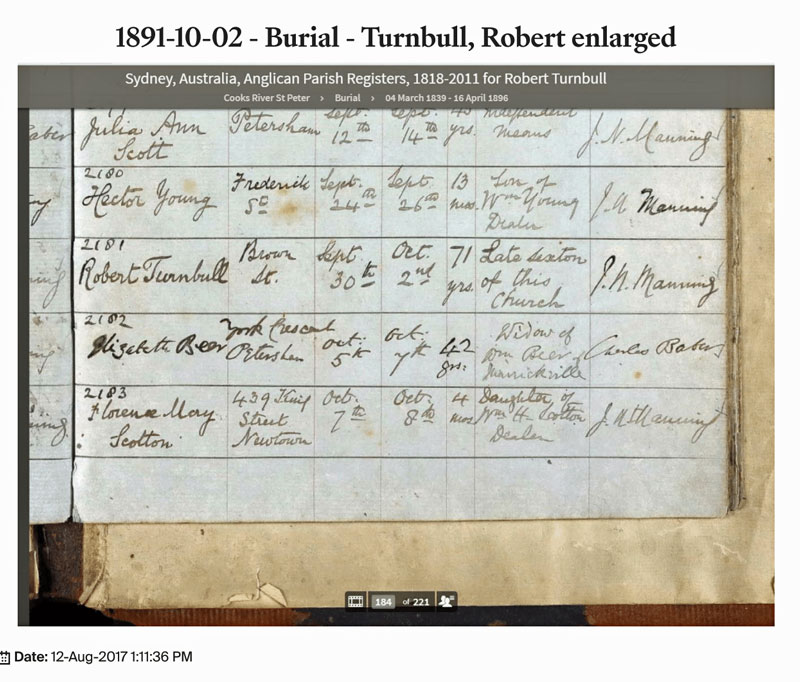 1891-10-02 - Burial - Turnbull, Robert enlarged
Sydney, Australia, Anglican Parish Registers, 1818-2011 for Robert Turnbull
Cooks River St Peter > Burial > 04 March 1839 - 16 April 1896
Julia Ann Petersham Sept. Sept. Independent
Scott 12th 14th yrs. means J. N. Manning
2180
Hector Young Frederick Sept. Sept. 13 Son of
St 24th 26th mos. Wm Young Manning
Dealer
2181
Robert Turnbull Brown Sept. Oct. 71 Late sexton
St. 30th 2nd yrs. of this J. N. Manning
Church
2182
Elizabeth Beer York Crescent Oct. Oct. 42 Widow of
Petersham 5th 7th yrs. Wm Beer of Charles Baber
Marrickville
2183
Florence May 439 King Oct. Oct. 4 Daughter of
Scotton Street 7th 8th mos Wm H. Scotton J. N. Manning
Newtown Dealer
184 of 221
Date: 12-Aug-2017 1:11:36 PM